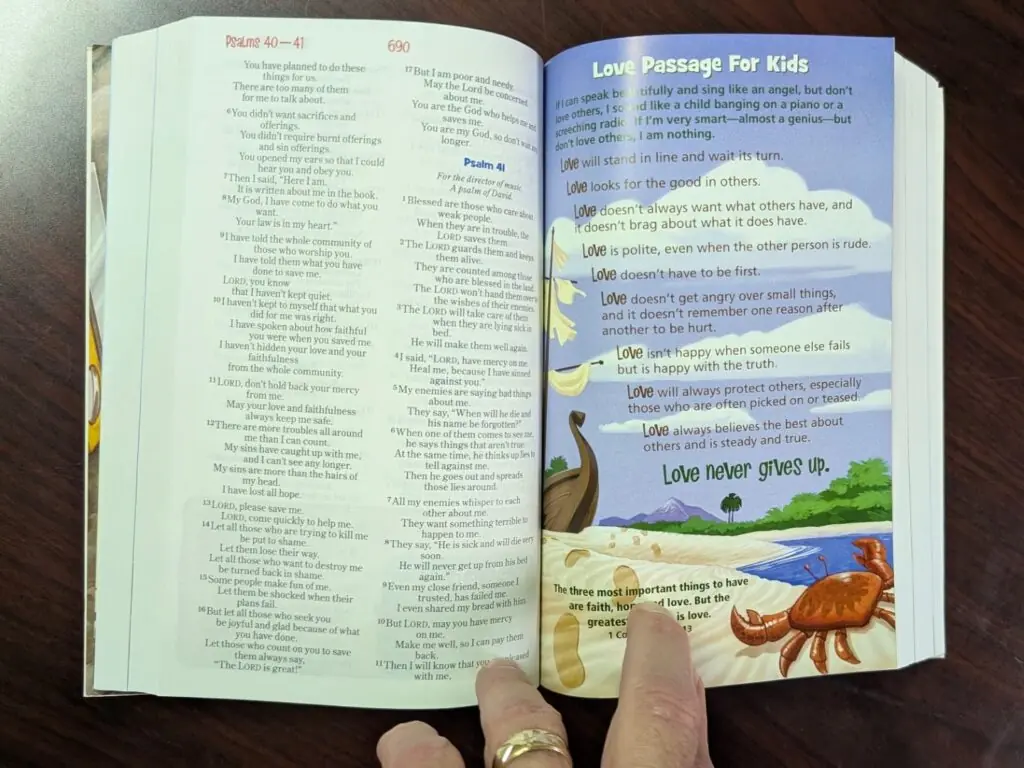 Psalms 40—41
690
You have planned to do these
things for us.
There are too many of them
for me to talk about.
6You didn't want sacrifices and
offerings.
You didn't require burnt offerings
and sin offerings.
You opened my ears so that I could
hear you and obey you.
7Then I said, "Here I am.
It is written about me in the book.
8My God, I have come to do what you
want.
Your law is in my heart."
9I have told the whole community of
those who worship you.
I have told them what you have
done to save me.
LORD, you know
that I haven't kept quiet.
10I haven't kept to myself that what you
did for me was right.
I have spoken about how faithful
you were when you saved me.
I haven't hidden your love and your
faithfulness
from the whole community.
11LORD, don't hold back your mercy
from me.
May your love and faithfulness
always keep me safe.
12There are more troubles all around
me than I can count.
My sins have caught up with me,
and I can't see any longer.
My sins are more than the hairs of
my head.
I have lost all hope.
13LORD, please save me.
LORD, come quickly to help me.
14Let all those who are trying to kill me
be put to shame.
Let them lose their way.
Let all those who want to destroy me
be turned back in shame.
15Some people make fun of me.
Let them be shocked when their
plans fail.
16But let all those who seek you
be joyful and glad because of what
you have done.
Let those who count on you to save
them always say,
"The LORD is great!"
17But I am poor and needy.
May the Lord be concerned
about me.
You are the God who helps me and
saves me.
You are my God, so don't wait any
longer.
Psalm 41
For the director of music.
A psalm of David.
1Blessed are those who care about
weak people.
When they are in trouble, the
LORD saves them.
2The LORD guards them and keeps
them alive.
They are counted among those
who are blessed in the land.
The LORD won't hand them over to
the wishes of their enemies.
3The LORD will take care of them
when they are lying sick in
bed.
He will make them well again.
4I said, "LORD, have mercy on me.
Heal me, because I have sinned
against you."
5My enemies are saying bad things
about me.
They say, "When will he die and
his name be forgotten?"
6When one of them comes to see me,
he says things that aren't true.
At the same time, he thinks up lies to
tell against me.
Then he goes out and spreads
those lies around.
7All my enemies whisper to each
other about me.
They want something terrible to
happen to me.
8They say, "He is sick and will die very
soon.
He will never get up from his bed
again."
9Even my close friend, someone I
trusted, has failed me.
I even shared my bread with him.
10But LORD, may you have mercy
on me.
Make me well, so I can pay them
back.
11Then I will know that you pleased
with me.
Love Passage For Kids
If I can speak beautifully and sing like an angel, but don't
love others, I sound like a child banging on a piano or a
screeching radio. If I'm very smart—almost a genius—but
don't love others, I am nothing.
Love will stand in line and wait its turn.
Love looks for the good in others.
Love doesn't always want what others have, and
it doesn't brag about what it does have.
Love is polite, even when the other person is rude.
Love doesn't have to be first.
Love doesn't get angry over small things,
and it doesn't remember one reason after
another to be hurt.
Love isn't happy when someone else fails
but is happy with the truth.
Love will always protect others, especially
those who are often picked on or teased.
Love always believes the best about
others and is steady and true.
Love never gives up.
The three most important things to have
are faith, hope and love. But the
greatest is love.
1 Co 13